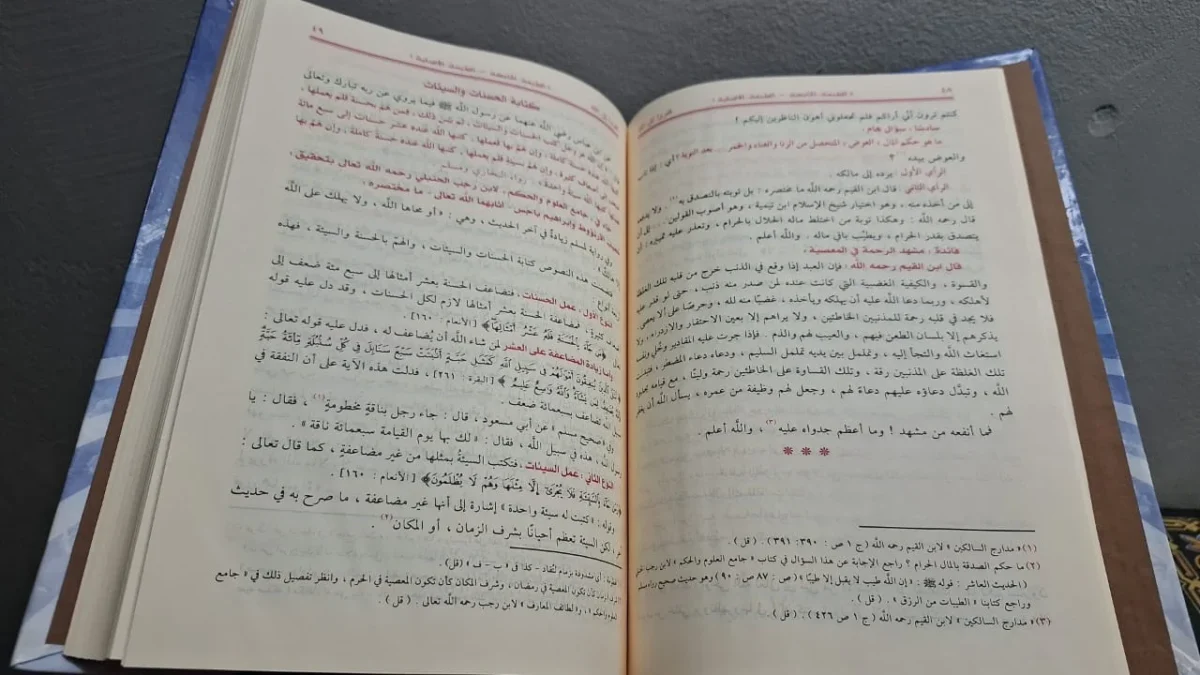 ٤٨
كنتم ترون أني أراكم فلم تجعلوني أهون الناظرين إليكم ؟ !
سادسًا : سؤال هام .
ما هو حكم المال ، العوض ، المتحصل من الزنا والغناء والخمر... بعد التوبة ؟ أي :
والعوض بيده ؟
الرأي الأول : يرده إلى مالكه .
الرأي الثاني : قال ابن القيم رحمه الله ما مختصره : بل توبته بالتصدق به (٢) . ولا
إلى من أخذه منه ، وهو اختيار شيخ الإسلام ابن تيمية ، وهو أصوب القولين ... إلى أن
قال رحمه الله : وهكذا توبة من اختلط ماله الحلال بالحرام ، وتعذر عليه تمييزه : أن
يتصدق بقدر الحرام ، ويطيّب باقي ماله . والله أعلم .
فائدة : مشهد الرحمة في المعصية .
قال ابن القيم رحمه الله : فإن العبد إذا وقع في الذنب خرج من قلبه تلك الغلظة
والقسوة ، والكيفية الغضبية التي كانت عنده لمن صدر منه ذنب ، حتى لو قدر عليه
لأهلكه ، وربما دعا الله عليه أن يهلكه ويأخذه ، غضبًا منه لله ، وحرصًا على ألا يعصى
فلا يجد في قلبه رحمة للمذنبين الخاطئين ، ولا يراهم إلا بعين الاحتقار والازدراء ، ولا
يذكرهم إلا بلسان الطعن فيهم ، والعيب لهم والذم . فإذا جرت عليه المقادير وخُلي ونفسه
استغاث الله والتجأ إليه ، وتململ بين يديه تململ السليم ، ودعاه دعاء المضطر ، فتبدلت
تلك الغلظة على المذنبين رقة ، وتلك القساوة على الخاطئين رحمة ولينًا ، مع قيامه بحدود
الله ، وتبدَّل دعاؤه عليهم دعاءً لهم ، وجعل لهم وظيفة من عمره ، يسأل الله أن يغفر
لهم .
فما أنفعه من مشهد ! وما أعظم جدواه عليه (٣) ، والله أعلم .
* * *
(١) « مدارج السالكين » لابن القيم رحمه الله (ج ١ ص : ٣٩٠ ؛ ٣٩١) . ( قل ) .
(٢) ما حكم الصدقة بالمال الحرام ؟ راجع الإجابة عن هذا السؤال في كتاب « جامع العلوم والحكم » لابن رجب
(الحديث العاشر : قوله ﷺ : « إن الله طيب لا يقبل إلا طيبًا » (ص : ٨٧ ص : ٩٠) وهو حديث صحيح رواه مسلم
وراجع كتابنا « الطيبات من الرزق » . ( قل ) .
(٣) « مدارج السالكين » لابن القيم رحمه الله (ج ١ ص ٤٢٦ ) . ( قل ) .
٤٩
كتابة الحسنات والسيئات
عن ابن عباس رضي الله عنهما عن رسول الله ﷺ فيما يروي عن ربه تبارك وتعالى
إن الله عز وجل كتب الحسنات والسيئات ، ثم بيّن ذلك ، فمن هم بحسنة فلم يعملها ،
كتبها الله عنده حسنة كاملة ، وإن هم بها فعملها ، كتبها الله عنده عشر حسنات إلى سبع مائة
ضعف إلى أضعاف كثيرة ، وإن هم بسيئة فلم يعملها ، كتبها الله عنده حسنة كاملة ، وإن هم بها
فعملها كتبها الله سيئة واحدة » . رواه البخاري ومسلم
جاء في « جامع العلوم والحكم » لابن رجب الحنبلي رحمه الله تعالى بتحقيق
شعيب الأرنؤوط وإبراهيم باجس أثابهما الله تعالى ، ما مختصره :
وفي رواية لمسلم زيادةٌ في آخر الحديث ، وهي : « أو محاها الله ، ولا يهلك على الله
إلا هالك »
فتضمنت هذه النصوص كتابة الحسنات والسيئات ، والهمّ بالحسنة والسيئة ، فهذه
أربعة أنواع :
النوع الأول : عمل الحسنات ، فتضاعف الحسنة بعشر أمثالها إلى سبع مئة ضعف إلى
أضعاف كثيرة ، فمضاعفة الحسنة بعشر أمثالها لازم لكل الحسنات ، وقد دل عليه قوله
﴿ مَن جَآءَ بِٱلْحَسَنَةِ فَلَهُۥ عَشْرُ أَمْثَالِهَا ﴾ [الأنعام : ١٦٠] .
وأما زيادة المضاعفة على العشر لمن شاء الله أن يُضاعف له ، فدل عليه قوله تعالى :
﴿ مَّثَلُ ٱلَّذِينَ يُنفِقُونَ أَمْوَٰلَهُمْ فِى سَبِيلِ ٱللَّهِ كَمَثَلِ حَبَّةٍ أَنۢبَتَتْ سَبْعَ سَنَابِلَ فِى كُلِّ سُنۢبُلَةٍ مِّا۟ئَةُ حَبَّةٍ
وَٱللَّهُ يُضَٰعِفُ لِمَن يَشَآءُ وَٱللَّهُ وَٰسِعٌ عَلِيمٌ ﴾ [البقرة : ٢٦١] ، فدلت هذه الآية على أن النفقة في
سبيل الله تضاعف بسبعمائة ضعف .
وفي « صحيح مسلم » عن أبي مسعود ، قال : جاء رجل بناقةٍ مخطومةٍ (١) ، فقال : يا
رسول الله ، هذه في سبيل الله ، فقال : « لك بها يوم القيامة سبعمائة ناقة » .
النوع الثاني : عمل السيئات ، فتكتب السيئةُ بمثلها من غير مضاعفةٍ ، كما قال تعالى :
﴿ وَمَن جَآءَ بِٱلسَّيِّئَةِ فَلَا يُجْزَىٰٓ إِلَّا مِثْلَهَا وَهُمْ لَا يُظْلَمُونَ ﴾ [الأنعام : ١٦٠] .
وقوله : « كتبت له سيئة واحدة » إشارة إلى أنها غير مضاعفة ، ما صرح به في حديث
لكن السيئة تعظم أحيانًا بشرف الزمان ، أو المكان (٢) .
أي مشدودة بزمام تُقاد - كذا في « ب - ف » (قل) .
شرف الزمان كأن تكون المعصية في رمضان ، وشرف المكان كأن تكون المعصية في الحرم ، وانظر تفصيل ذلك في « جامع
العلوم والحكم » ، و« لطائف المعارف » لابن رجب رحمه الله تعالى . ( قل ) .